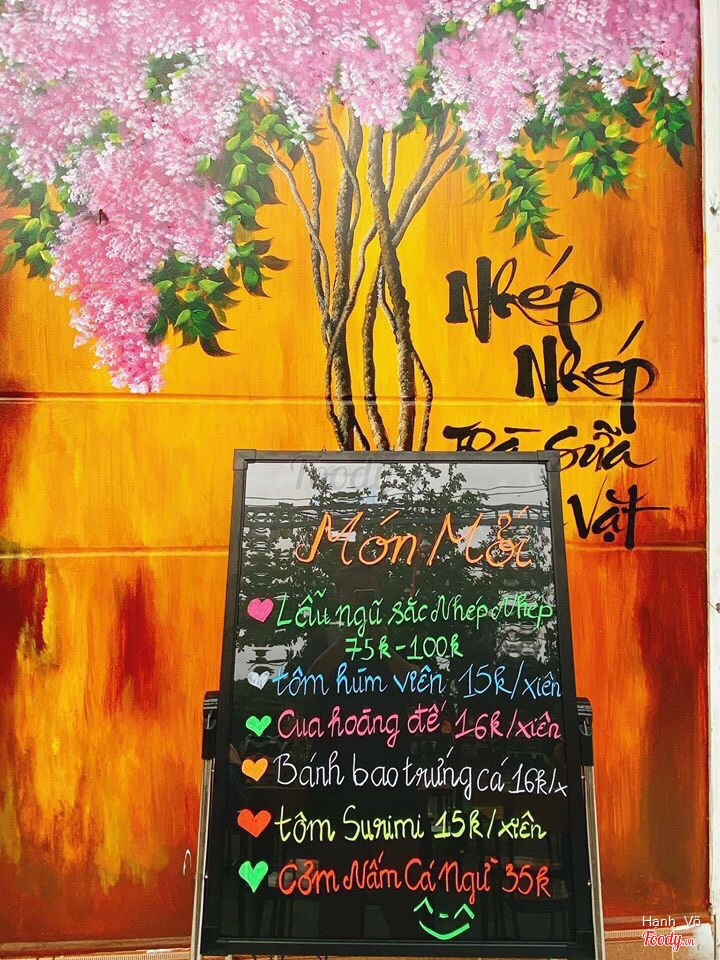 Nhép
Nhép
Trà Sữa
Vặt
Foody
Món Mới
Lẩu ngũ sắc Nhép Nhép
75k-100k
tôm hùm viên 15k/xiên
Cua hoàng đế 16k/xiên
Bánh bao trứng cá 16k/x
tôm Surimi 15k/xiên
Cơm Nấm Cá Ngừ 35k
Hạnh Võ
Foody.vn